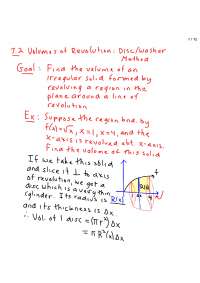 7.2 Volumes of Revolution: Disc/Washer
Method
Goal: Find the volume of an
irregular solid formed by
revolving a region in the
plane around a line of
revolution
Ex: Suppose the region bnd. by
f(x)=√x, x=1, x=4, and the
x-axis is revolved abt x-axis.
Find the volume of this solid
If we take this solid
and slice it ⊥ to axis
of revolution, we get a
disc which is a very thin
cylinder. Its radius is R(x)
and its thickness is Δx
∴ Vol. of 1 disc = (πr²)Δx
= πR²(x)Δx